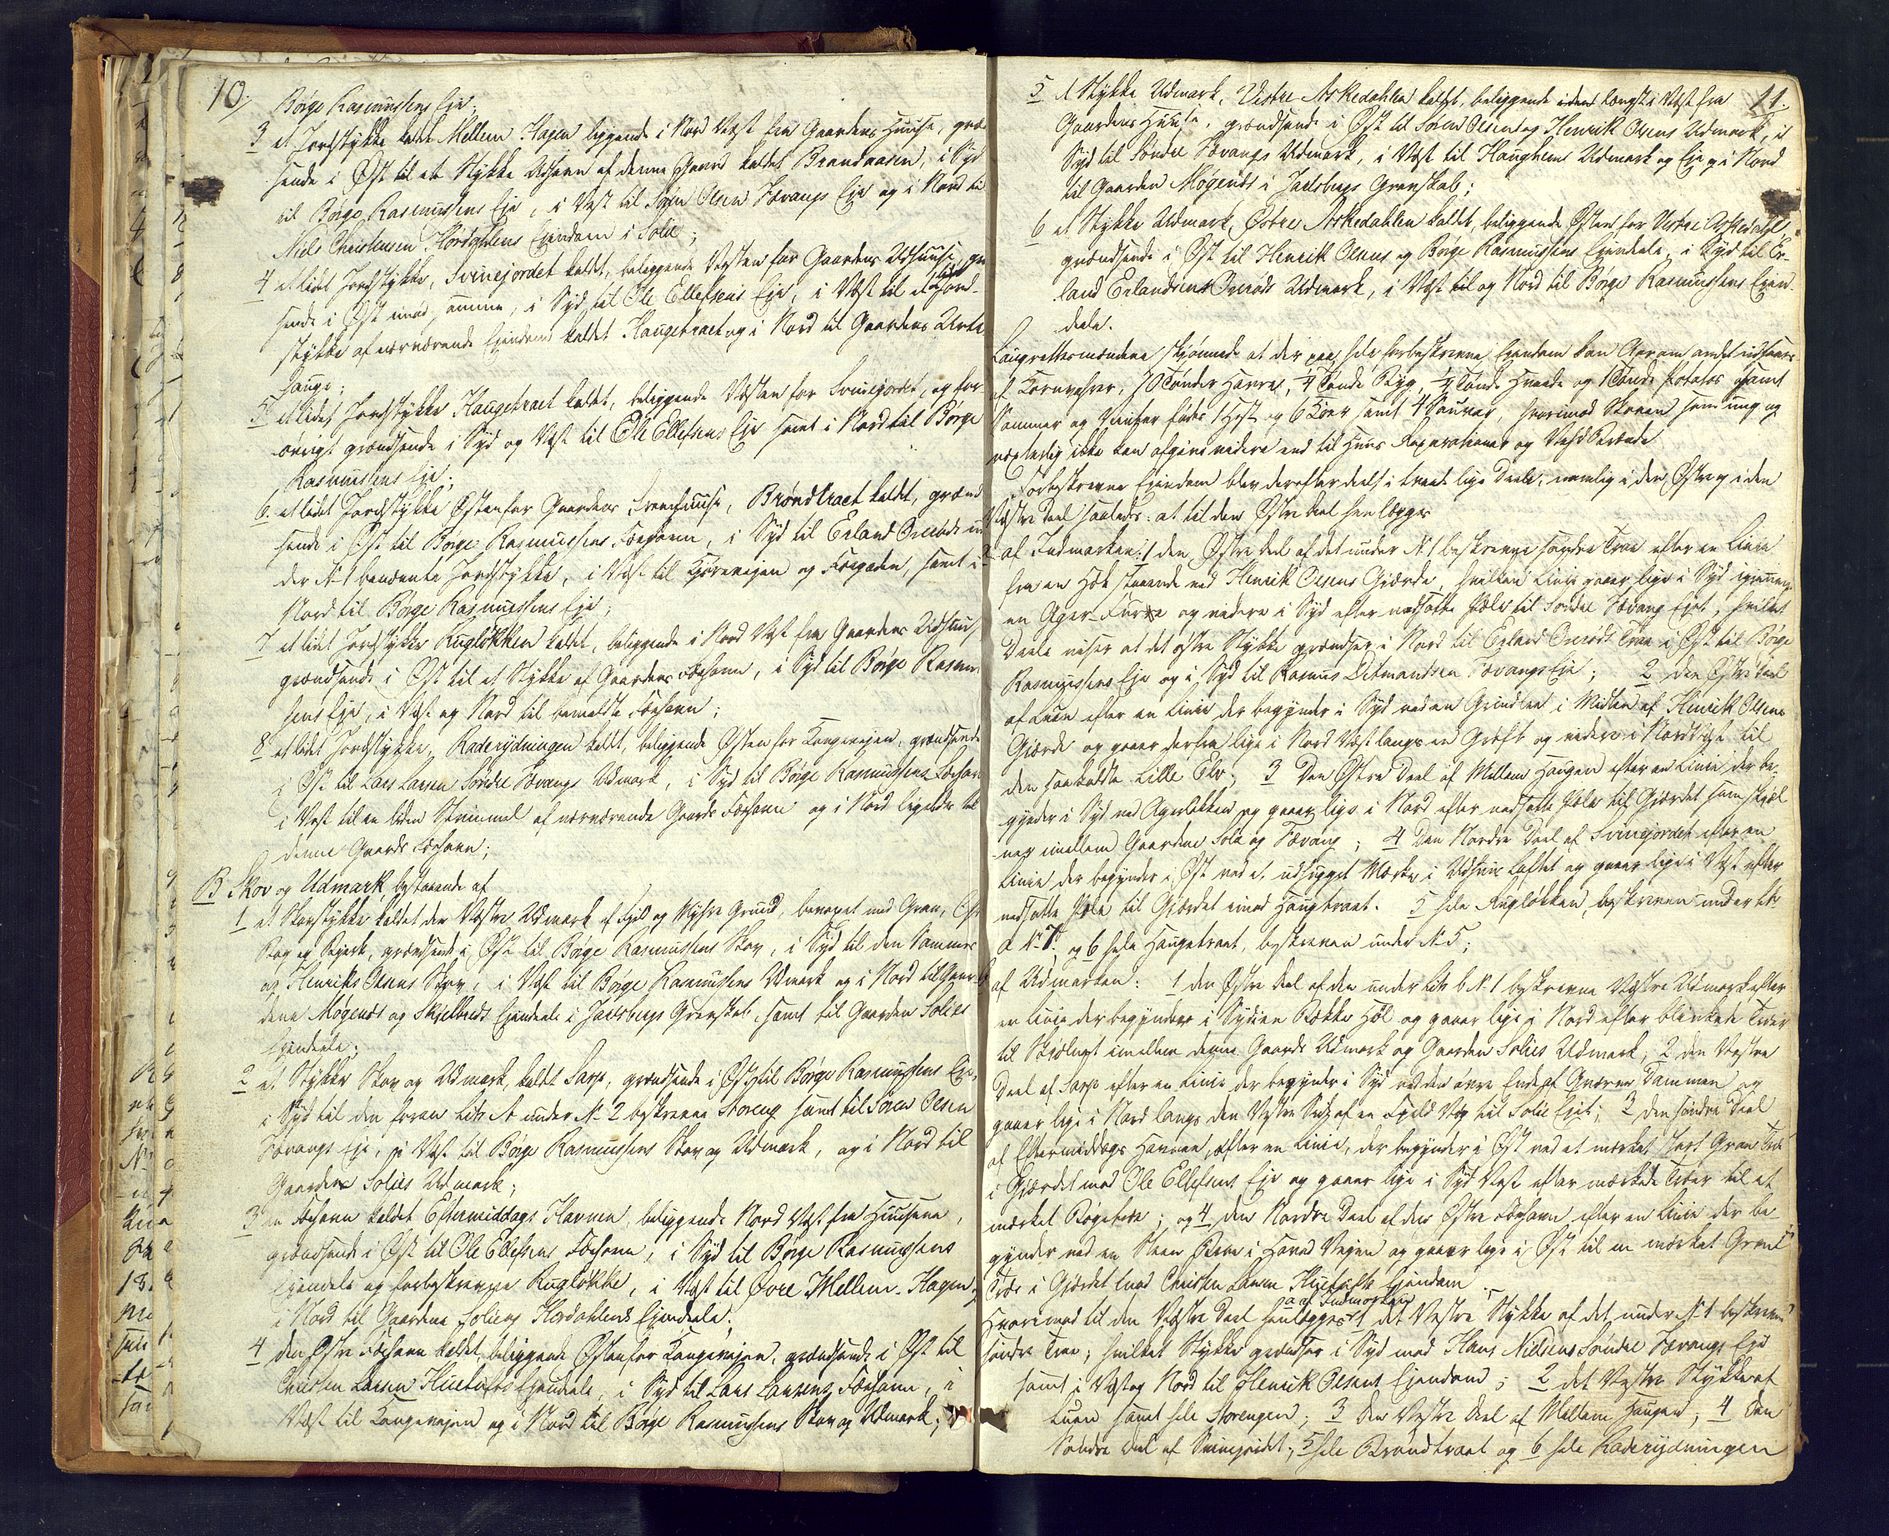 10/
Børge Rasmussens Eje;
3 et Jordstykke kaldt Mellem Hagen liggende i Nord Vest fra Gaardens Huuse, græn
sende i Øst til et Stykke Udhavn af denne Gaard kaldet Brandaasen, i Syd
til Børge Rasmussens Eje, i Vest til Søren Olsen Fævangs Eje og i Nord til
Niels Christensen Hørdahlens Ejendom i Solie;
4 et lidet Jordstykke, Svinejordet kaldt, beliggende Vesten for Gaardens Udhuuse, græn
sende i Øst mod samme, i Syd til Ole Ellefsens Eje, i Vest til et Jord-
stykke af nærværende Ejendom kaldet Haugetraet og i Nord til Gaardens Urte
hauge;
5 et lidet Jordstykke Haugetraet kaldt, beliggende Vesten for Svinejordet, og for
øvrigt grændsende i Syd og Vest til Ole Ellefsens Eje samt i Nord til Børge
Rasmussens Eje;
6. et lidet Jordstykke Østenfor Gaardens Huuse, Brøndtraet kaldt, grænd
sende i Øst til Børge Rasmussens Fæhavn, i Syd til Erland Omsrøds un
der N 1 benævnte Jordstykke, i Vest til Kjøreveien og Fægaden, samt i
Nord til Børge Rasmussens Eje;
7 et lidet Jordstykke Rugløkken kaldt, beliggende i Nord Vest fra Gaardens Udhuus
grændsende i Øst til et Stykke af Gaardens Fæhavn, i Syd til Børge Rasmus
sens Eje, i Vest og Nord til bemeldte Fæhavn;
8 et lidet Jordstykke, Raderydningen kaldt, beliggende Østen for Kongeveien, grændsende
i Øst til Lars Larsen Søndre Fævangs Udmark, i Syd til Børge Rasmussens Fæhavn
i Vest til en liden Strimmel af nærværende Gaards Fæhavn og i Nord ligeledes til
denne Gaards Fæhavn;
B Skov og Udmark bestaaende af
1 et Skovstykke kaldet den Vestre Udmark af Fjeld og Myhre Grund, bevoxet med Gran,
Skov og Birk, grændsende i Øst til Børge Rasmussens Skov, i Syd til den Sammes
og Henrik Olsens Skov, i Vest til Børge Rasmussens Udmark og i Nord til Gaar
dene Møgends og Skjelbreds Ejendeele i Jarlsbergs Grevskab, samt til Gaarden Solies
Ejendeele;
2 et Stykke Skov og Udmark, kaldt Sarp, grændsende i Øst til Børge Rasmussens Eje,
i Syd til den foran Litr A under N 2 beskrevne Storeng samt til Søren Olsen
Fævangs Eje, i Vest til Børge Rasmussens Skov og Udmark, og i Nord til
Gaarden Solies Udmark;
3 en Fæhavn kaldet Eftermiddags Havnen, beliggende Nord Vest fra Huusene,
grændsende i Øst til Ole Ellefsens Fæhavn, i Syd til Børge Rasmussens
Ejendele og forbeskrevne Rugløkke, i Vest til Øvre Mellem Hagen,
i Nord til Gaarden Soliens Hørdahlens Ejendeele;
4 den Østre Fæhavn kaldet, beliggende Østenfor Kongeveien, grændsende i Øst til
Christen Larsen Huetufts Ejendeele, i Syd til Lars Larsens Fæhavn, i
Vest til Kongeveien og i Nord til Børge Rasmussens Skov og Udmark;
11.
5 et Stykke Udmark, Vestre Askedahlen kaldt, beliggende idens længst i Vest fra
Gaardens Huuse, grændsende i Øst til Søren Olsen og Henrik Olsens Udmark, i
Syd til Søndre Fævangs Udmark, i Vest til Haughems Udmark og Eje og i Nord
til Gaarden Møgends i Jarlsbergs Grevskab;
6 et Stykke Udmark, Østre Askedahlen kaldt, beliggende Østen for Vestre Askedahl,
grændsende i Øst til Henrik Olsens og Børge Rasmussens Ejendeele, i Syd til Er-
land Erlandsens Omsrøds Udmark, i Vest til og Nord til Børge Rasmussens Ejen-
deele.
Laugrettesmændene skjønnede at der paa hele forbeskrevne Ejendom kan Aar om andet udsaaes
af Kornvahrer, 10 Tønder Havre, 1/4 Tønde Rug, 1/4 Tønde Hvede og 1 Tønde Potatos samt
Sommer og Vinter fødes 1 Hest og 6 Kiør samt 4 Souver, hvorimod Skoven som ung og
væxterlig ikke kan afgive videre end til Huus Reparationer og Ved Brænde
Forbeskrevne Ejendom blev derefter deelt i tvende lige Deele, nemlig i den Østre og i den
Vestre Deel saaledes: at til den Østre Deel henlægges
af Indmarken: 1 den Østre Deel af det under N 1 beskrevne søndre Trae efter en Linie
fra en Hæk staaende ved Henrik Olsens Gjærde, hvilken Linie gaaer lige i Syd igjennem
en Ager Furre og videre i Syd efter nedsatte Pæle til Søndre Fævang Ejet, hvilket
Deele viser at det østre Stykke grændser i Nord til Erland Omsrøds Trae i Øst til Børge
Rasmussens Eje og i Syd til Rasmus Ditmandsen Fævangs Eje; 2 den Østre Deel
af Luen efter en Linie der begynder i Syd ved en Grind i Midten af Henrik Olsens
Gjærde og gaaer derfra lige i Nord Vest langs en Grøft og videre i Nord til
den saakaldte Lille Elv; 3 Den Østre Deel af Mellem Haugen efter en Linie der be-
gynder i Syd ved Agerløkken og gaaer lige i Nord efter nedsatte Pæle til Gjærdet som skjel
ner imellem Gaardene Solie og Fævang; 4 Den Nordre Deel af Svinejordet efter en
Linie der begynder i Øst ved et udhugget Mærke i Udhuus Loftet og gaaer lige i Vest efter
nedsatte Pæle til Gjærdet imod Haugtraet. 5 hele Rugløkken, beskreven under Litr
A N 7. og 6 hele Haugetraet, beskreven under N 5;
af Udmarken: 1 den Østre Deel af den under Litr b N 1 beskrevne Vestre Udmark efter
en Linie der begynder i Syd en Rokke Høl og gaaer lige i Nord efter blinkede Træer
til Skjellet imellem denne Gaards Udmark og Gaarden Solies Udmark, 2 den Vestre
Deel af Sarp efter en Linie der begynder i Syd ved den øvre Ende af Qværne Dammen og
gaaer lige i Nord langs den Vestre Side af en Fjeld Væg til Solie Ejet; 3 den søndre Deel
af Eftermiddags Havnen, efter en Linie, der begynder i Øst ved et mærket Gran Træ
i Gjærdet mod Ole Ellefsens Eje og gaaer lige i Syd Vest efter mærkede Træer til et
mærket Rognetræ; og 4 den Nordre Deel af den Østre Fæhavn efter en Linie der be-
gynder ved en Steen i Hoved Veien og gaaer lige i Øst til en mærket Gran
Træe i Gjærdet imod Christen Larsen Huetufts Ejendom.
Hvorimod til den Vestre Deel henlægges a af Indmarken 1 det Vestre Stykke af det under N 1 beskrevne
søndre Trae; hvilket Stykke grændser i Syd mod Hans Nielsens Søndre Fævangs Eje
samt i Vest og Nord til Henrik Olsens Ejendom; 2 det Vestre Stykke af
Luen samt hele Storengen; 3 den Vestre Deel af Mellem Haugen; 4 den
Søndre Deel af Svinejordet; 5 hele Brøndtraet og 6 hele Raderydningen